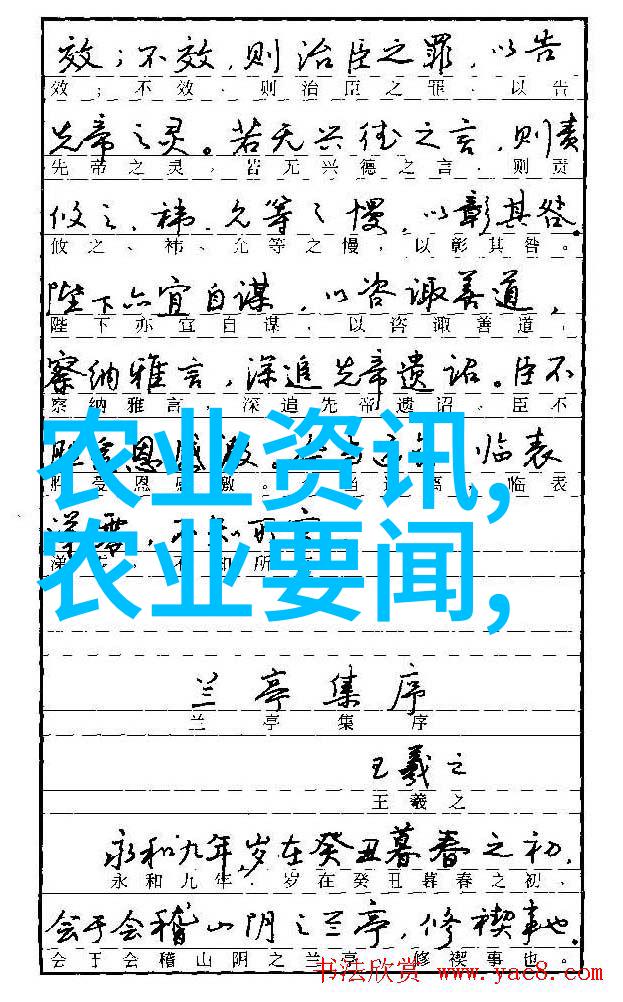 效；不效，则治臣之罪，以告
效；不效、则治臣之罪、以告
先帝之灵。若无兴德之言，则责
先帝之灵，若无兴德之言、则责
攸之、祎、允等之慢，以彰其咎。
攸之、祎、允等之慢，以彰其咎。
陛下亦宜自谋，以咨诹善道，
陛下亦宜自谋，以咨诹善道，
察纳雅言，深追先帝遗诏。臣不
察纳雅言，深追先帝遗诏。臣不
农业资讯,
临表
临表
农业要闻,
兰亭集序
兰亭集序
王羲之
王羲之
永和九年,岁在癸丑暮春之初,
永和九年，岁在癸丑暮春之初、
会于会稽山阴之兰亭，修禊事也。
会于会稽山阴之兰亭 修禊事也。
书法欣赏 www.yac8.com